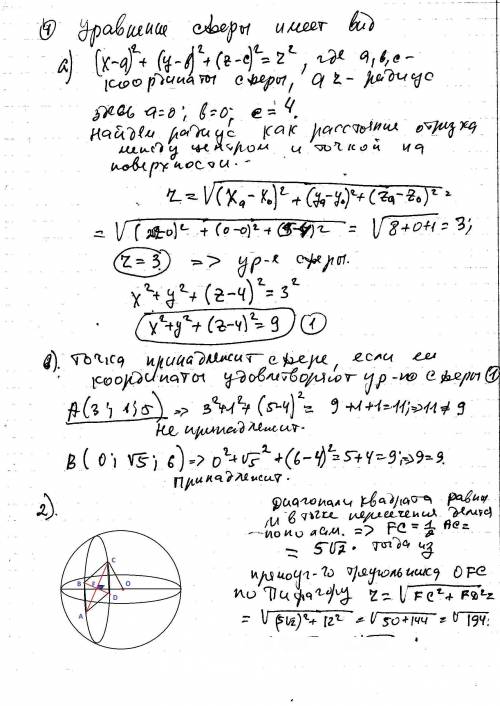 ① Уравнение сферы имеет вид
а) (x-a)²+(y-b)²+(z-c)²=r², где a,b,c-
координаты сферы, а r - радиус
здесь a=0; b=0; c=4.
Найдем радиус как расстояние отрезка
между центром и точкой на
поверхности.
r = √(xₐ-x₀)² + (yₐ-y₀)² + (zₐ-z₀)² =
= √( -0)² + (0-0)² + (5-4)² = √8+0+1 = 3;
r=3 => ур-е сферы.
x²+y²+(z-4)²=3²
x²+y²+(z-4)²=9 ①
в). точка принадлежит сфере, если ее
координаты удовлетворяют ур-ю сферы ①
A(3; 1; 5) => 3²+1²+(5-4)²= 9+1+1=11; =>11≠9
не принадлежит.
B(0; √5; 6) => 0²+√5²+(6-4)²=5+4=9; =>9=9.
Принадлежит.
2).
Диагонали квадрата равны
и в точке пересечения делятся
пополам. => FC=½AC=
= 5√2. тогда из
прямоуг-го треугольника OFC
по Пифагору r=√FC²+FO²=
= √(5√2)²+12² = √50+144 = √194.
C
B
F
O
D
A